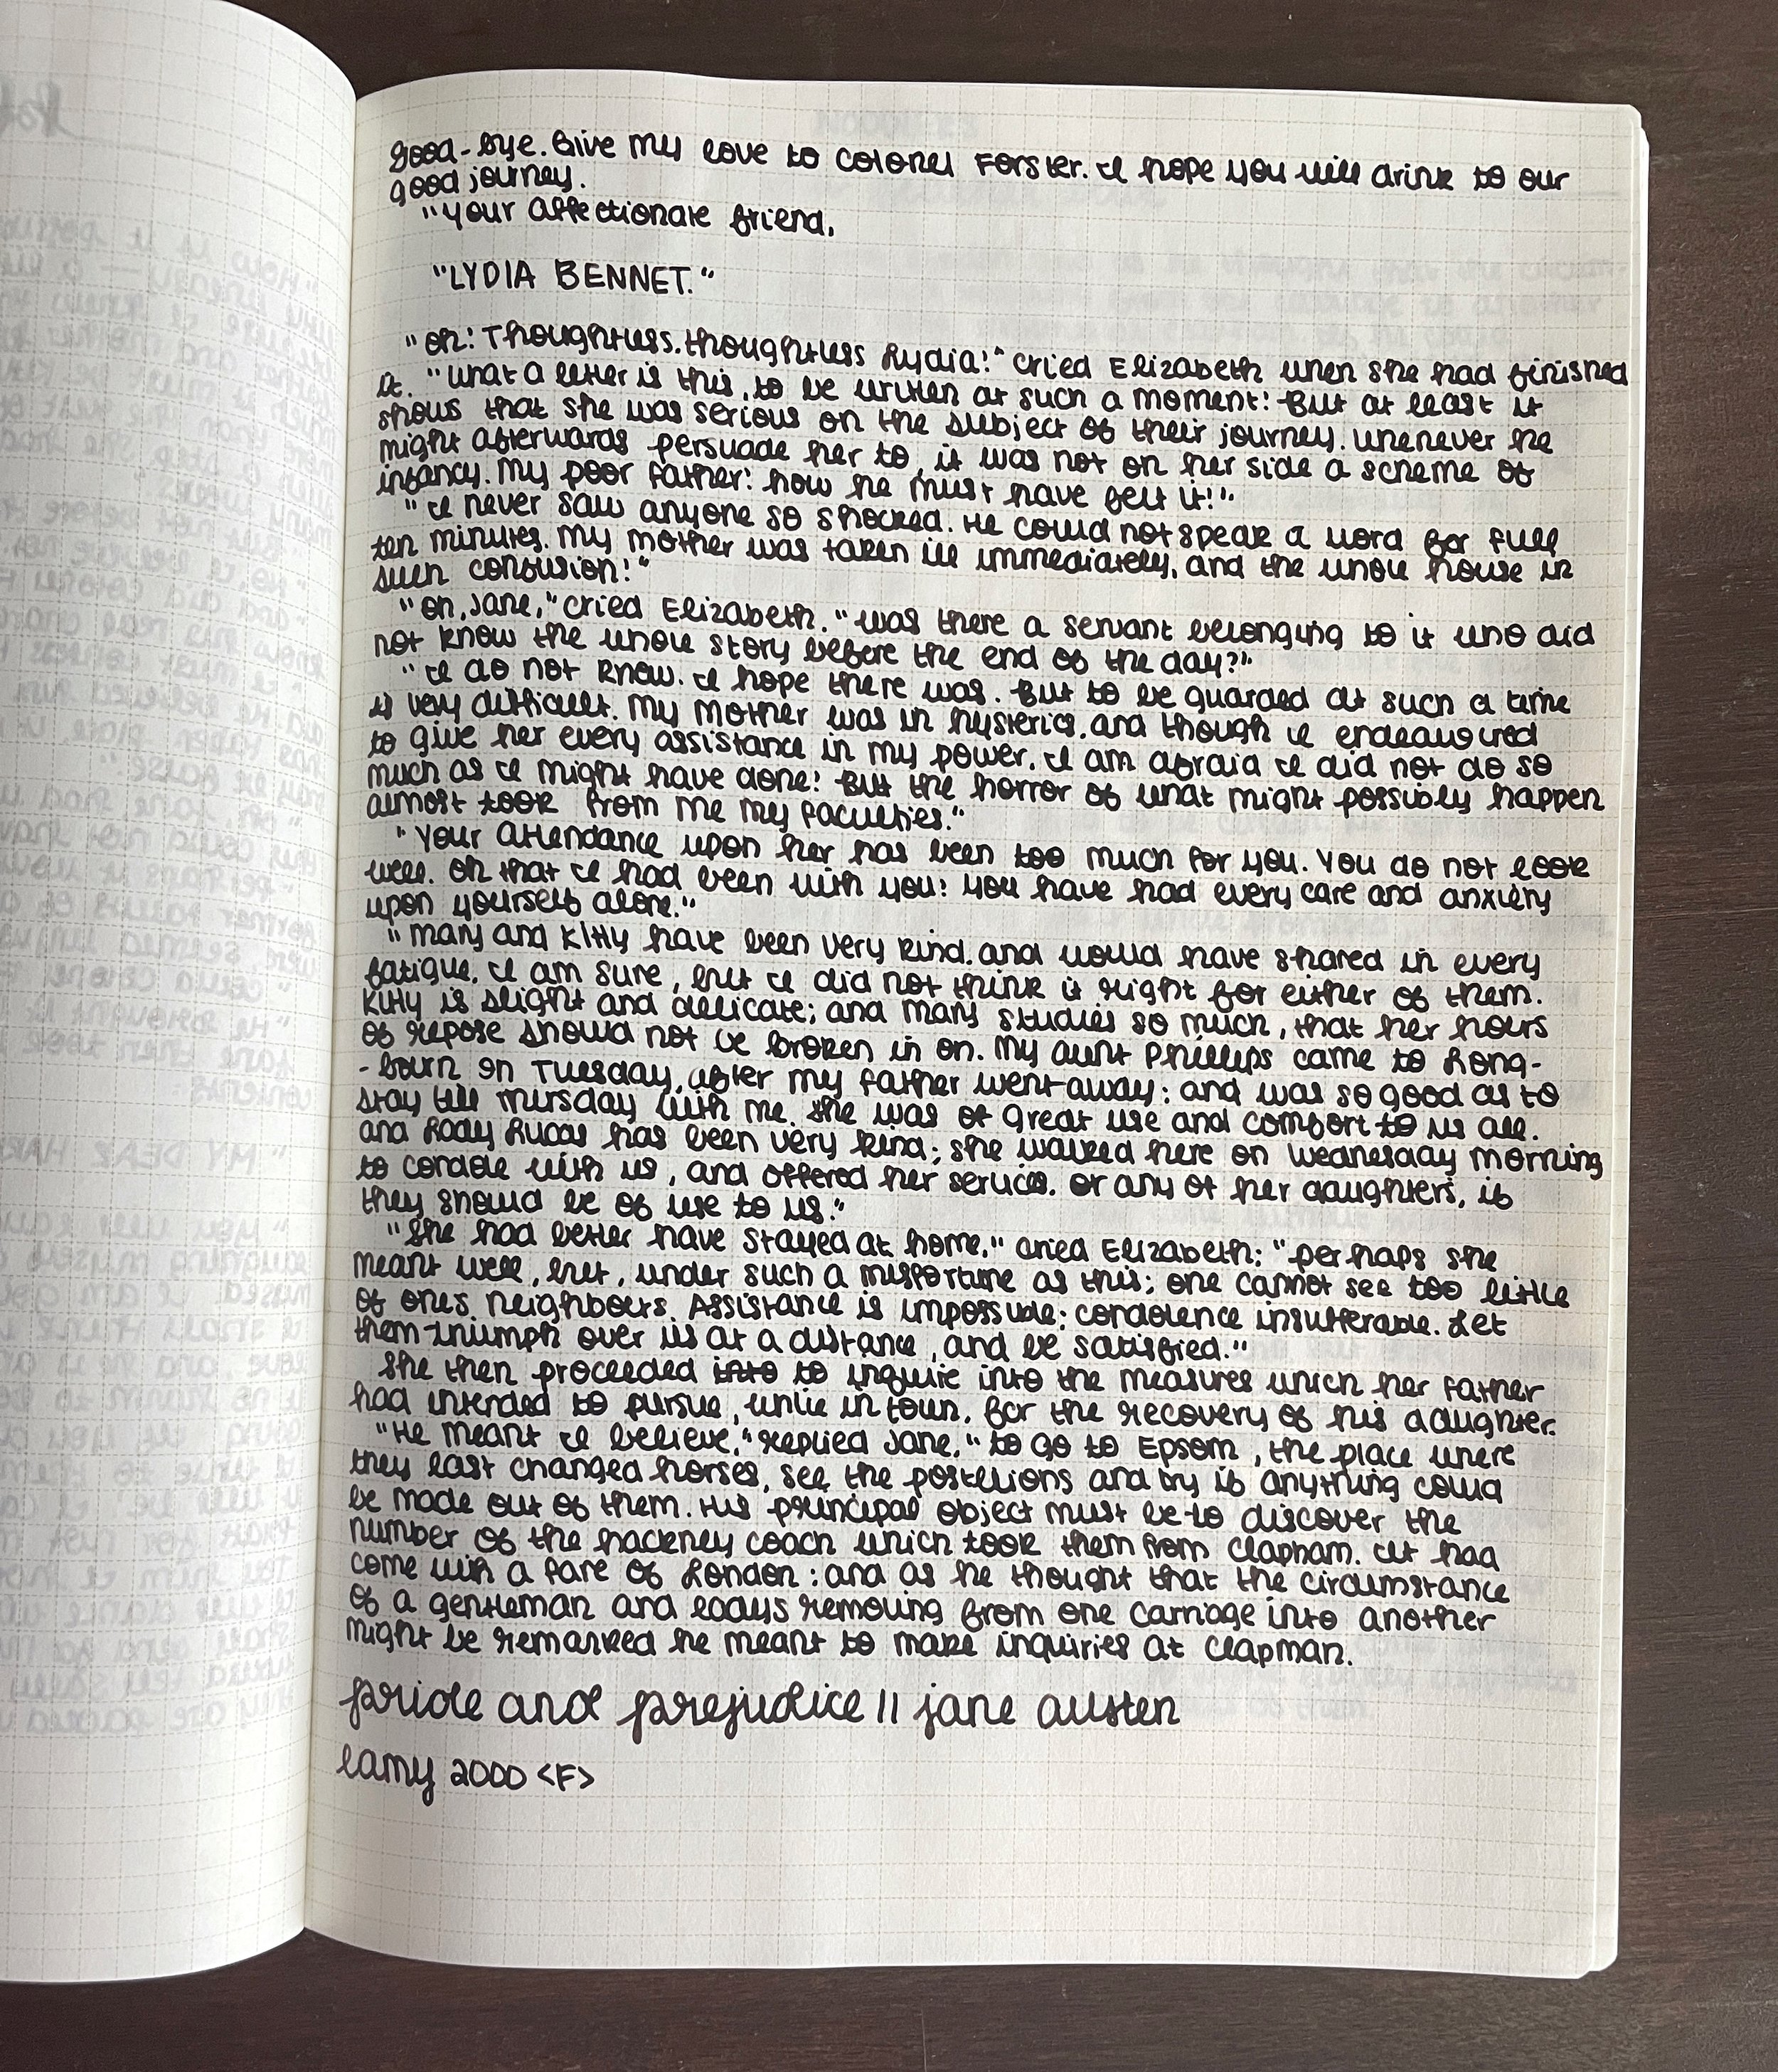 good-bye. Give my love to Colonel Forster. I hope you will drink to our
good journey.
"your affectionate friend,
"LYDIA BENNET."
"Oh! Thoughtless, thoughtless Lydia!" cried Elizabeth when she had finished
it. "What a letter is this, to be written at such a moment! But at least it
shows that she was serious on the subject of their journey. whenever he
might afterwards persuade her to, it was not on her side a scheme of
infancy. My poor father! how he must have felt it!"
"I never saw anyone so shocked. He could not speak a word for full
ten minutes. My mother was taken ill immediately, and the whole house in
such confusion!"
"Oh, Jane," cried Elizabeth. "was there a servant belonging to it who did
not know the whole story before the end of the day?"
"I do not know. I hope there was. But to be guarded at such a time
is very difficult. My mother was in hysterics, and though I endeavoured
to give her every assistance in my power, I am afraid I did not do so
much as I might have done! But the horror of what might possibly happen
almost took from me my faculties."
"Your attendance upon her has been too much for you. You do not look
well. Oh that I had been with you! you have had every care and anxiety
upon yourself alone."
"Mary and Kitty have been very kind, and would have shared in every
fatigue, I am sure, but I did not think it right for either of them.
Kitty is slight and delicate; and Mary studies so much, that her hours
of repose should not be broken in on. My aunt Phillips came to Long-
-bourn on Tuesday, after my father went away; and was so good as to
stay till Thursday with me. She was of great use and comfort to us all.
and Lady Lucas has been very kind; she walked here on Wednesday morning
to condole with us, and offered her services, or any of her daughters, if
they should be of use to us."
"She had better have stayed at home," cried Elizabeth: "perhaps she
meant well, but, under such a misfortune as this; one cannot see too little
of ones neighbours. Assistance is impossible; condolence insufferable. Let
them triumph over us at a distance, and be satisfied."
She then proceeded into to inquire into the measures which her father
had intended to pursue, while in town, for the recovery of his daughter.
"He meant I believe," replied Jane, "to go to Epsom, the place where
they last changed horses, see the postilions and try if anything could
be made out of them. His principal object must be to discover the
number of the hackney coach which took them from Clapham. It had
come with a fare of London; and as he thought that the circumstance
of a gentleman and ladys removing from one carriage into another
might be remarked he meant to make inquiries at Clapman.
pride and prejudice || jane austen
lamy 2000 <F>